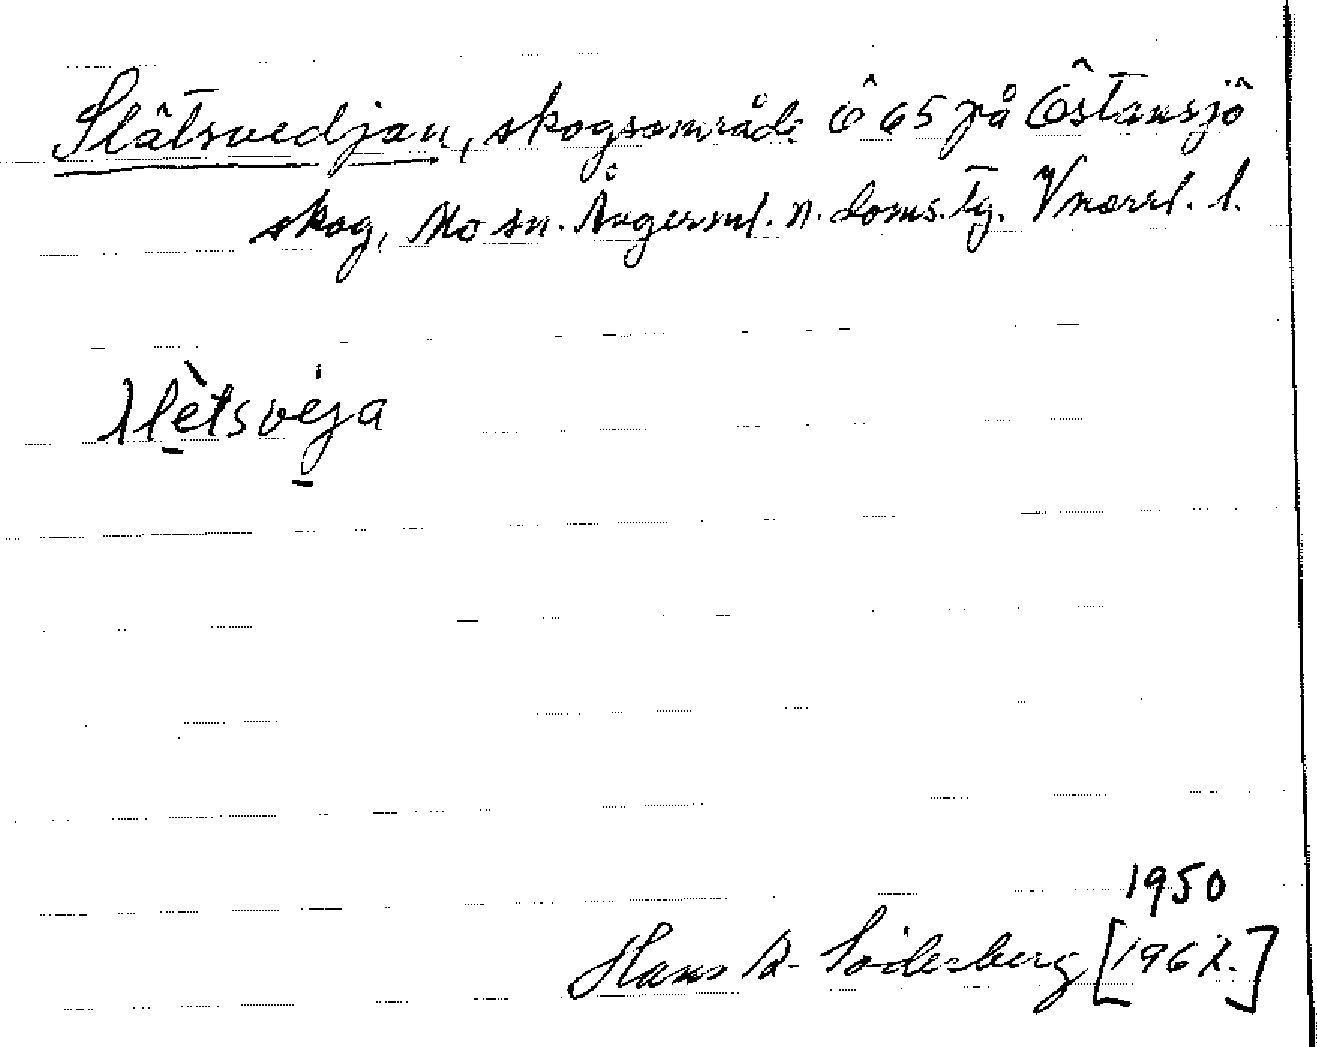 Slätsvedjan, skogsområde Ö 65 på Östansjö
skog, Mo sn. Ångerml. n. doms. tg. Vnorrl. l.
slètsvéja
1950
Hans A. Söderberg [1962.]